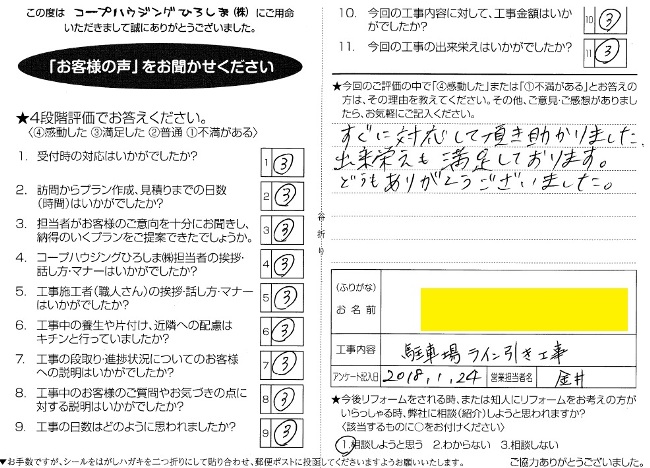 この度は コープハウジングひろしま(株) にご用命
いただきまして誠にありがとうございました。
「お客様の声」をお聞かせください
★4段階評価でお答えください。
〈④感動した ③満足した ②普通 ①不満がある〉
1. 受付時の対応はいかがでしたか?
1 ③
2. 訪問からプラン作成、見積りまでの日数
(時間)はいかがでしたか?
2 ③
3. 担当者がお客様のご意向を十分にお聞きし、
納得のいくプランをご提案できたでしょうか。
3 ③
4. コープハウジングひろしま㈱担当者の挨拶・
話し方・マナーはいかがでしたか?
4 ③
5. 工事施工者(職人さん)の挨拶・話し方・マナー
はいかがでしたか?
5 ③
6. 工事中の養生や片付け、近隣への配慮は
キチンと行っていましたか?
6 ③
7. 工事の段取り・進捗状況についてのお客様
への説明はいかがでしたか?
7 ③
8. 工事中のお客様のご質問やお気づきの点に
対する説明はいかがでしたか?
8 ③
9. 工事の日数はどのように思われましたか?
9 ③
谷折り
10. 今回の工事内容に対して、工事金額はいか
がでしたか?
10 ③
11. 今回の工事の出来栄えはいかがでしたか?
11 ③
★今回のご評価の中で「④感動した」または「①不満がある」とお答え
の方は、その理由を教えてください。その他、ご意見・ご感想がありまし
たら、お気軽にご記入ください。
すぐに対応して頂き助かりました。
出来栄えも満足しております。
どうもありがとうございました。
(ふりがな)
お名前
工事内容 駐車場ライン引き工事
アンケート記入日 2018,1,24 営業担当者名 金井
★今後リフォームをされる時、または知人にリフォームをお考えの方が
いらっしゃる時、弊社に相談(紹介)しようと思われますか?
〈該当するものに○をお付けください〉
1.相談しようと思う 2.わからない 3.相談しない
▼お手数ですが、シールをはがしハガキを二つ折りにして貼り合わせ、郵便ポストに投函してくださいますようお願いいたします。 ご協力ありがとうございました。